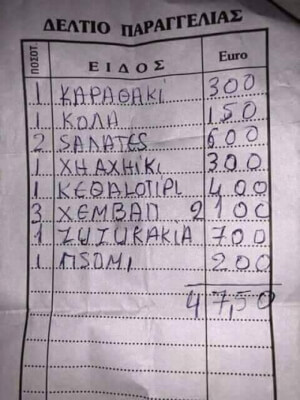 ΔΕΛΤΙΟ ΠΑΡΑΓΓΕΛΙΑΣ
ΠΟΣΟΤ. ΕΙΔΟΣ Euro
1 ΚΑΡΑΘΑΚΙ 300
1 ΚΟΛΑ 150
2 SANATES 600
1 ΧΗΑΧΗΙΚΙ 300
1 ΚΕΘΑLΟΤΙΡΙ 400
3 ΧΕΜΒΑΠ 2100
1 ΖUΖUΚΑΚΙΑ 700
1 ΠSOMI 200
47,50